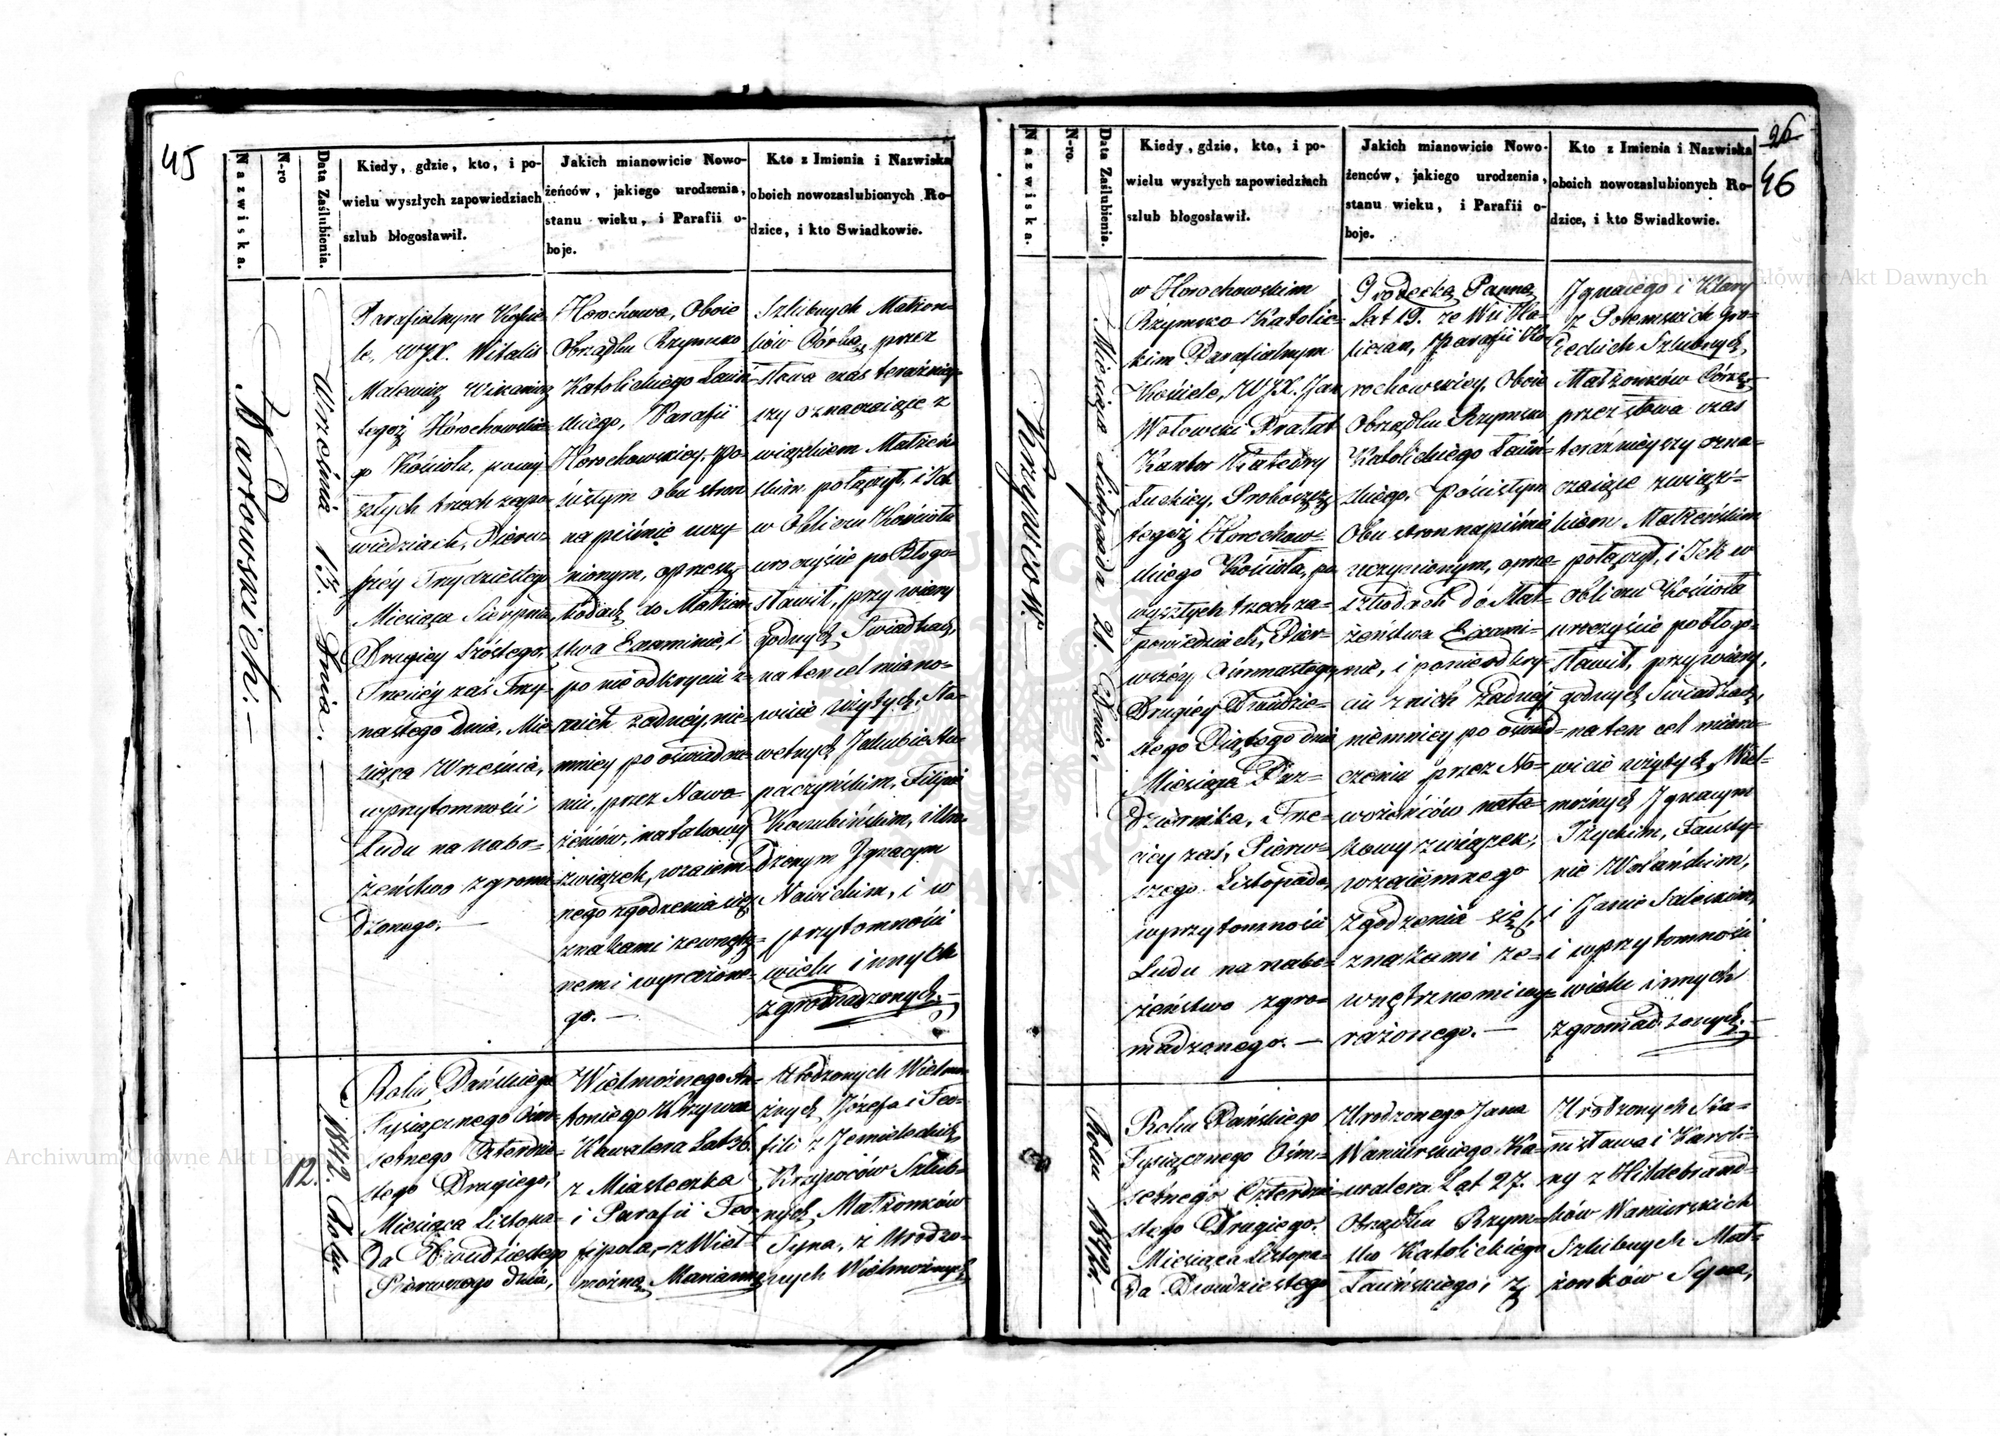 45
Nazwiska.
N-ro
Data Zaślubienia.
Kiedy, gdzie, kto, i po-
wielu wyszłych zapowiedziach
szlub błogosławił.
Jakich mianowicie Nowo-
żeńców, jakiego urodzenia,
stanu wieku, i Parafii o-
boje.
Kto z Imienia i Nazwiska
oboich nowozaslubionych Ro-
dzice, i kto Swiadkowie.
Nartowskich.—
Września 13. Dnia.—
Parafialnym Koście-
le, WJX. Witalis
Malewicz Wikaryusz
tegoż Horochowskie-
go Kościoła, powy-
szłych trzech zapo-
wiedziach, Pierw-
széy Trzydziestego
Miesiąca Sierpnia
Drugiey Szóstego,
Trzeciéy zaś Trzy-
nastego dnia, Mie-
siąca Września,
w przytomności
Ludu na nabo-
żeństwo zgroma-
dzonego.—
Horochowa, Oboie
Obrządku Rzymsko
Katolickiego Łaciń-
skiego, Parafii
Horochowskiey, po
ścisłym obu stron
na piśmie uczy-
nionym, o przesz-
kodach do Małżeń-
stwa Examinie, i
po nie odkryciu z
nich żadnéy nie-
mniey po oświadcze-
niu, przez Nowo-
żeńców, na takowy
związek, wzaiem-
nego zgodzenia się
znakami zewnętrz-
nemi wyrażone-
go.—
Szlubnych Małżon-
ków Córkę, przez
słowa czas teraźniey-
szy oznaczaiące z
wiązkiem Małżeń-
skim połączył, i Ich
w Obliczu Kościoła
uroczyście po Błogo-
sławił, przy wiary
godnych Świadkach,
na ten cel miano-
wicie użytych, Sła-
wetnych Jakubie Stu-
paczyńskim, Filipie
Kociubińskim, i Uro-
dzonym Ignacym
Nawickim, i w
przytomności
wielu innych
zgromadzonych.—
12.
1842. Roku—
Roku Pańskiego
Tysiącznego Óśm-
setnego Czterdzie-
stego Drugiego,
Miesiąca Listopa-
da Dwudziestego
Pierwszego dnia,
Wielmożnego An-
toniego Krzywca
Kawalera Lat 30.
z Miasteczka
i Parafii Teo-
fipola, z Wiel-
możną Marianną
Urodzonych Wielmo-
żnych Józefa i Teo-
fili z Jemieleckich
Krzywców Szlub-
nych Małżonków
Syna, z Urodzo-
nych Wielmożnych
26
46
Nazwiska.
N-ro.
Data Zaślubienia.
Kiedy, gdzie, kto, i po-
wielu wyszłych zapowiedziach
szlub błogosławił.
Jakich mianowicie Nowo-
żenców, jakiego urodzenia,
stanu wieku, i Parafii o-
boje.
Kto z Imienia i Nazwiska
oboich nowozaslubionych Ro-
dzice, i kto Swiadkowie.
Krzywców.—
Miesiąca Listopada 21. Dnia.—
w Horochowskim
Rzymsko Katolic-
kim Parafialnym
Kościele, WJX. Jan
Wołowski Prałat
Kantor Katedry
Łuckiey, Proboszcz
tegoż Horochow-
skiego Kościoła, po
wyszłych trzech za-
powiedziach, Pier-
wszéy Ósmnastego
Drugiéy Dwudzie-
stego Piątego dnia
Miesiąca Paź-
dziernika, Trze-
ciey zaś, Pierw-
szego Listopada,
w przytomności
Ludu na nabo-
żeństwo zgro-
madzonego.—
Grodecką Panną
Lat 19. ze Wsi Ho-
liczan, Parafii Ho-
rochowskiey, Oboie
Obrządku Rzymsko
Katolickiego Łaciń-
skiego. Pościsłym
Obu stron na piśmie
uczynionym, o prze-
szkodach do Mał-
żeństwa Exami-
nie, i ponieodkry-
ciu z nich żadnéj
niemniey po oświad-
czeniu przez No-
wożeńców na ta-
kowy związek,
wzaiemnego
zgodzenia się
znakami ze-
wnętrznemi wy-
rażonego.—
Ignacego i Klary
z Potemskich Gro-
deckich Szlubnych
Małżonków Córkę,
przez słowa czas
teraźnieyszy ozna-
czaiące związ-
kiem Małżeńskim
połączył, i Ich w
Obliczu Kościoła
uroczyście pobłogo-
sławił, przy wiary
godnych Świadkach,
na ten cel miano-
wicie użytych, Wiel-
możnych Ignacym
Iżyckim, Fausty-
nie Wolańskim,
i Janie Saleckim,
i w przytomności
wielu innych
zgromadzonych.—
Roku 1842.—
Roku Pańskiego
Tysiącznego Óśm-
setnego Czterdzie-
stego Drugiego,
Miesiąca Listopa-
da Dwudziestego
Urodzonego Jana
Waniurskiego, Ka-
walera Lat 27.
Obrządku Rzym-
sko Katolickiego
Łacińskiego, z
Urodzonych Sta-
nisława i Karoli-
ny z Hildebrand-
tków Waniurskich
Szlubnych Mał-
żonków Syna,
Archiwum Główne Akt Dawnych
Archiwum Główne Akt Dawnych